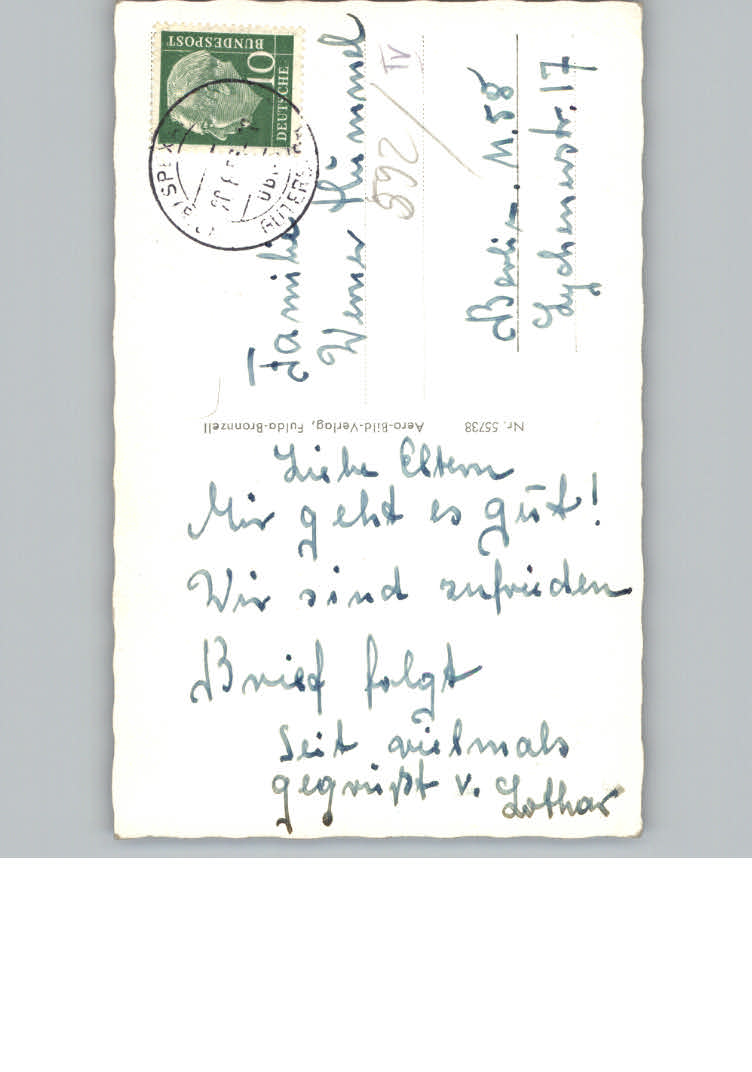 DEUTSCHE
BUNDESPOST
10
Familie
Werner Hümmel
592/IV
Berlin. N. 58
Lychenerstr. 17
Nr. 55738
Aero-Bild-Verlag, Fulda-Bronnzell
Liebe Eltern
Mir geht es gut!
Wir sind zufrieden
Brief folgt
Seit vielmals
gegrüßt v. Lothar